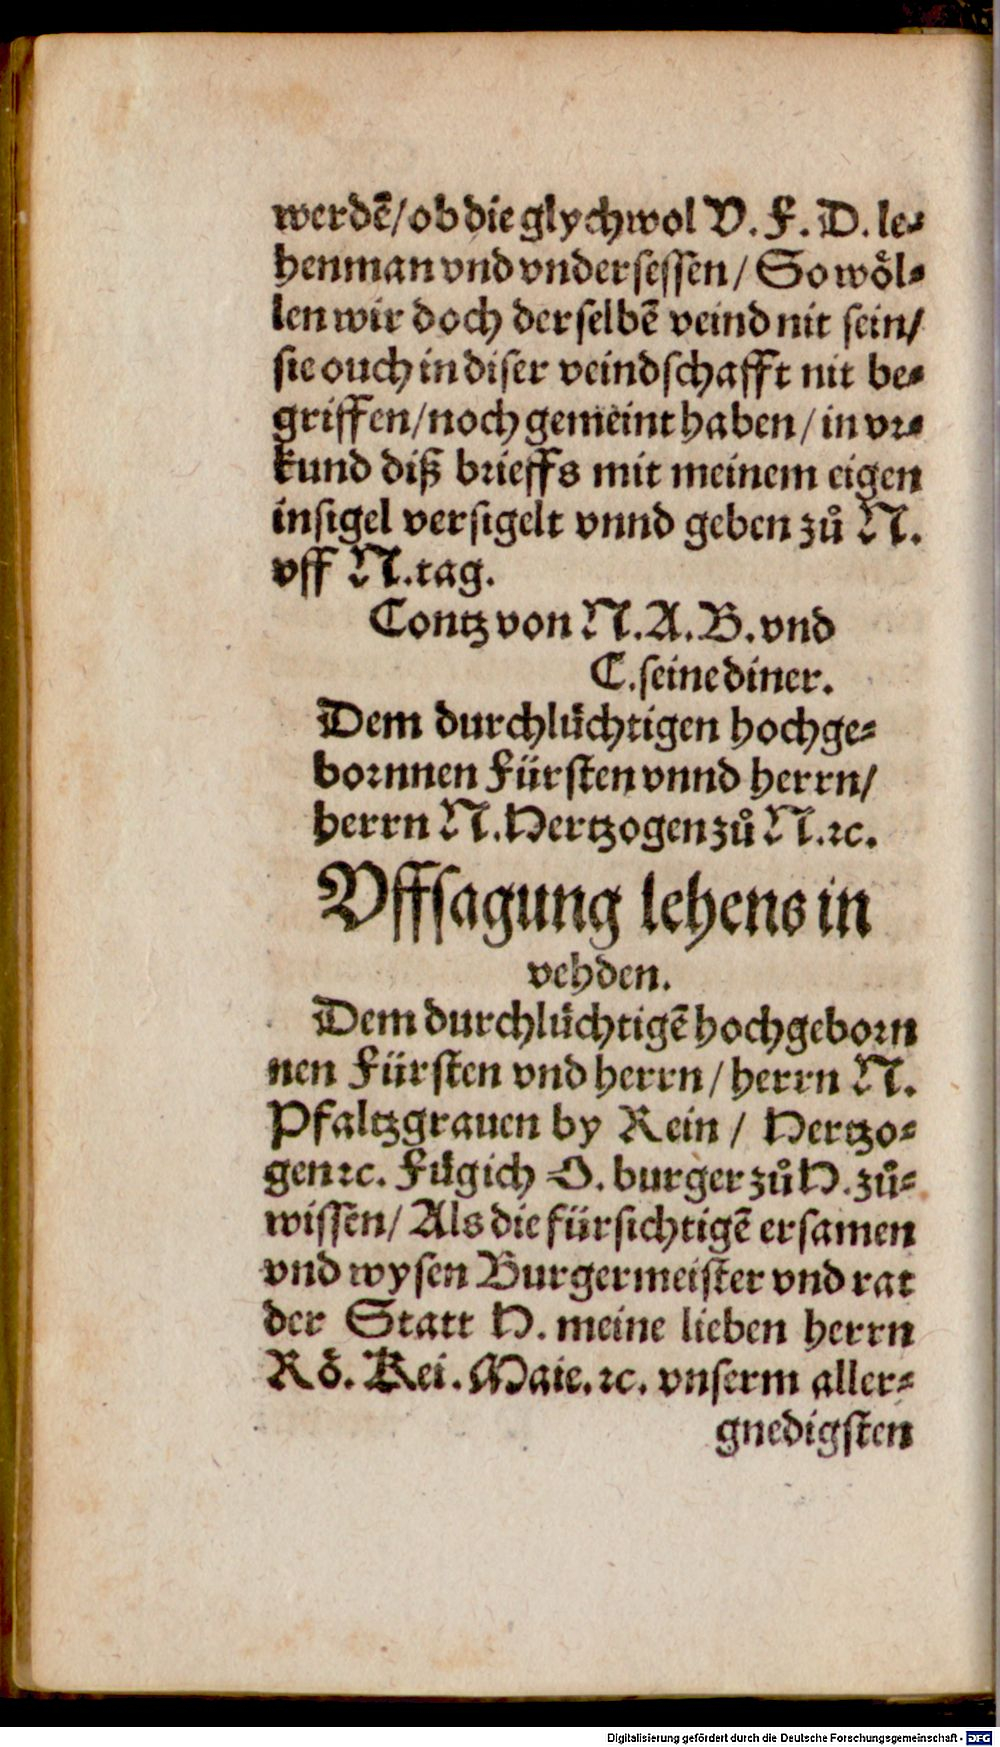 werdẽ/ob die glychwol V. F. D. le⸗
henman vnd vndersessen/ So wöl⸗
len wir doch derselbẽ veind nit sein/
sie ouch in diser veindschafft nit be⸗
griffen/noch gemeint haben/in vr⸗
kund diß brieffs mit meinem eigen
insigel versigelt vnnd geben zů N.
vff N.tag.
Contz von N.A.B.vnd
C.seine diner.
Dem durchlüchtigen hochge⸗
bornnen Fürsten vnnd herrn/
herrn N.Hertzogen zů N.ꝛc.
Vffsagung lehens in
vehden.
Dem durchlüchtigẽ hochgeborn
nen Fürsten vnd herrn/herrn N.
Pfaltzgrauen by Rein / Hertzo⸗
gen ꝛc. Füg ich O. burger zů H. zů⸗
wissen/ Als die fürsichtigẽ ersamen
vnd wysen Burgermeister vnd rat
der Statt H. meine lieben herrn
Rö. Kei. Maie. ꝛc. vnserm aller⸗
gnedigsten
Digitalisierung gefördert durch die Deutsche Forschungsgemeinschaft - DFG